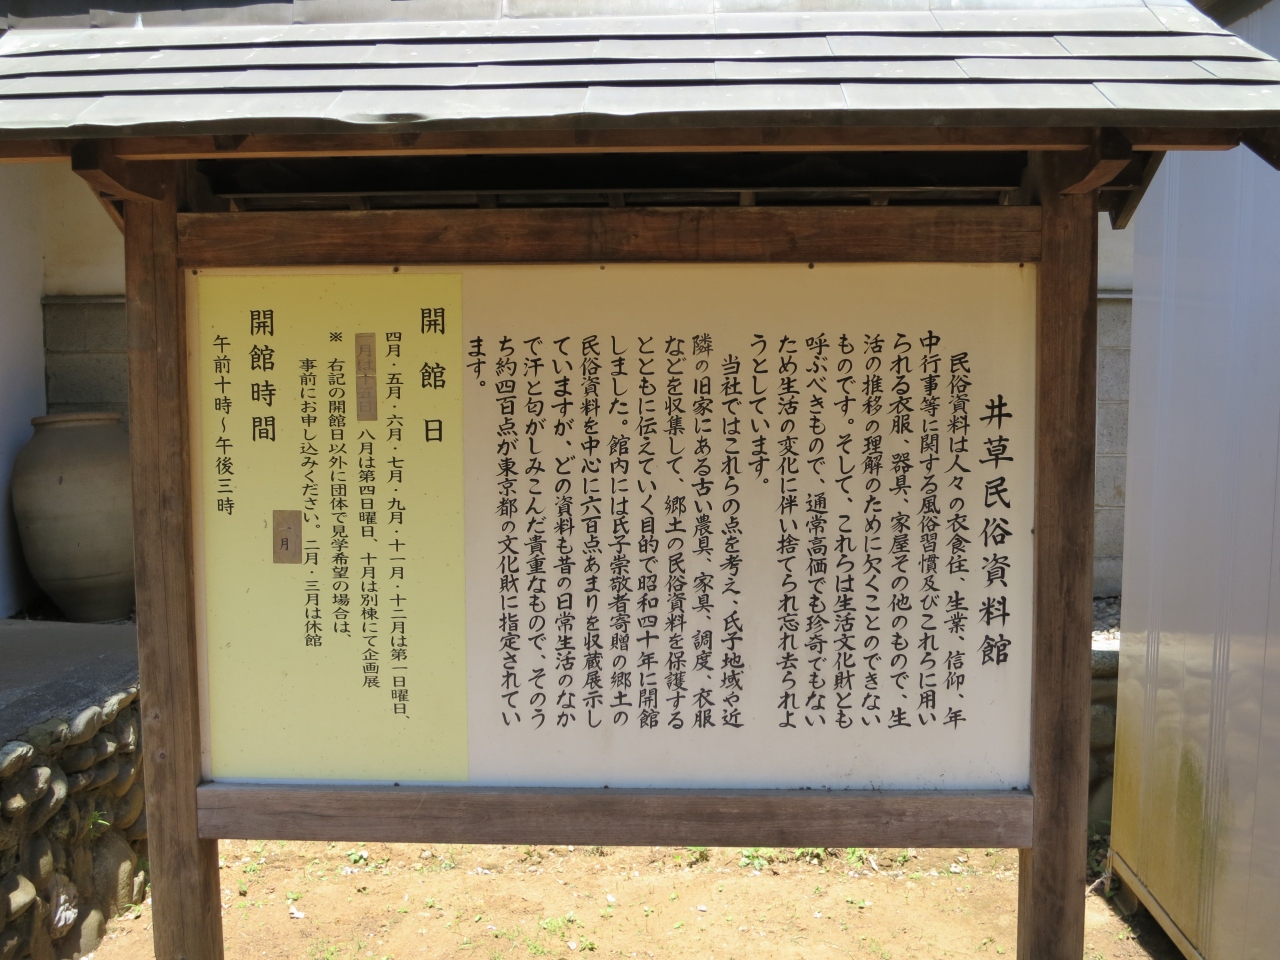 井草民俗資料館
民俗資料は人々の衣食住、生業、信仰、年
中行事等に関する風俗習慣及びこれらに用い
られる衣服、器具、家屋その他のもので、生
活の推移の理解のために欠くことのできない
ものです。そして、これらは生活文化財とも
呼ぶべきもので、通常高価でも珍奇でもない
ため生活の変化に伴い捨てられ忘れ去られよ
うとしています。
当社ではこれらの点を考え、氏子地域や近
隣の旧家にある古い農具、家具、調度、衣服
などを収集して、郷土の民俗資料を保護する
とともに伝えていく目的で昭和四十年に開館
しました。館内には氏子崇敬者寄贈の郷土の
民俗資料を中心に六百点あまりを収蔵展示し
ていますが、どの資料も昔の日常生活のなか
で汗と匂がしみこんだ貴重なもので、そのう
ち約四百点が東京都の文化財に指定されてい
ます。
開館日
四月・五月・六月・七月・九月・十一月・十二月は第一日曜日、
八月は第四日曜日、十月は別棟にて企画展
※ 右記の開館日以外に団体で見学希望の場合は、
事前にお申し込みください。二月・三月は休館
一月
開館時間
午前十時～午後三時